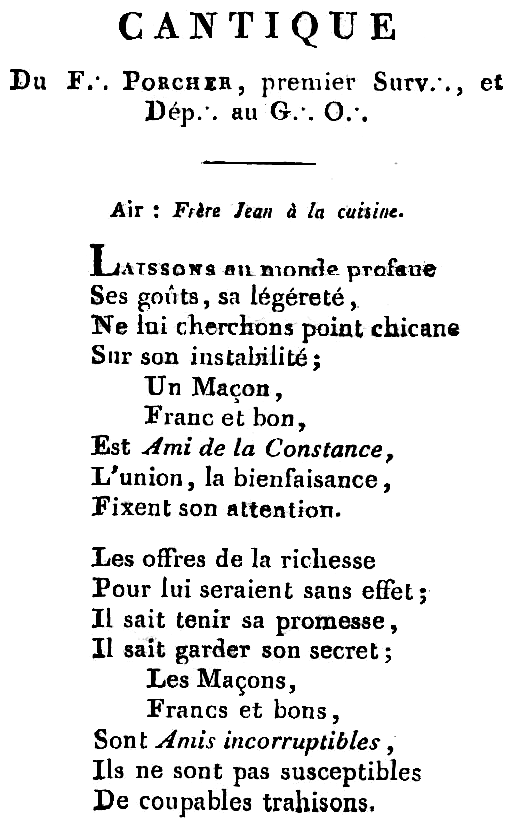 CANTIQUE
Du F∴ PORCHER, premier Surv∴, et
Dép∴ au G∴ O∴
Air : Frère Jean à la cuisine.
LAISSONS au monde profane
Ses goûts, sa légéreté,
Ne lui cherchons point chicane
Sur son instabilité ;
Un Maçon,
Franc et bon,
Est Ami de la Constance,
L'union, la bienfaisance,
Fixent son attention.
Les offres de la richesse
Pour lui seraient sans effet ;
Il sait tenir sa promesse,
Il sait garder son secret ;
Les Maçons,
Francs et bons,
Sont Amis incorruptibles,
Ils ne sont pas susceptibles
De coupables trahisons.